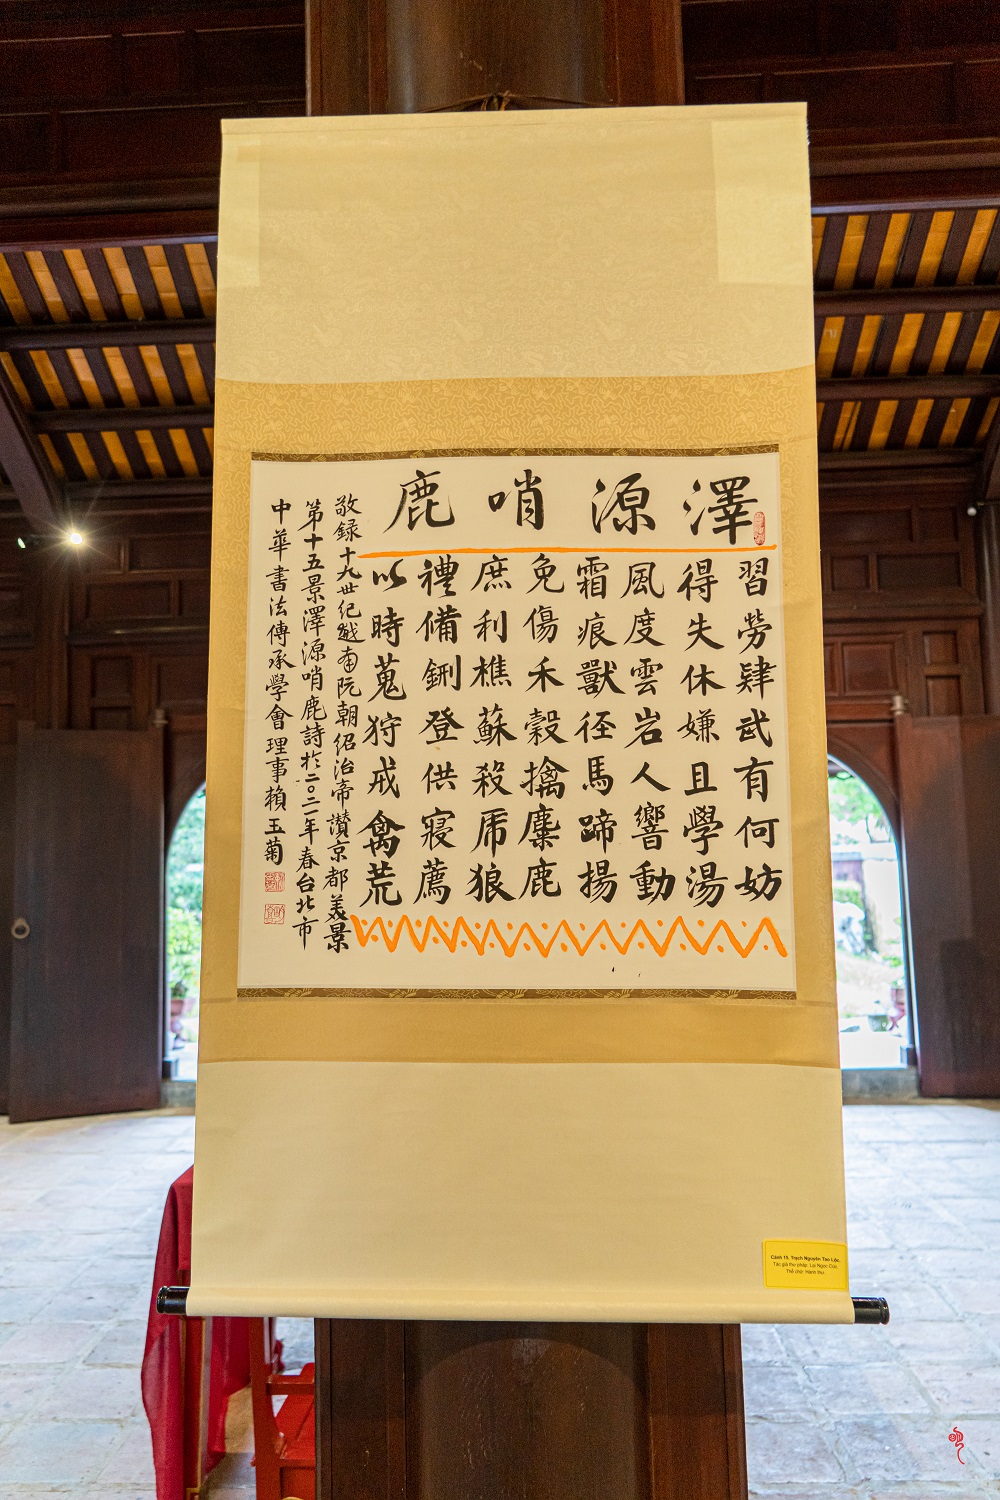 澤源哨鹿
習勞肄武有何妨
得失休嫌且學湯
風度雲岩人響動
霜痕獸径馬蹄揚
免傷禾穀擒麋鹿
庶利樵蘇殺虎狼
禮備鉶登供寢薦
以時蒐狩戒禽荒
敬録十九世纪越南阮朝绍治帝讚京都美景
第十五景澤源哨鹿詩於二〇二一年春台北市
中華書法傳承學會理事賴玉菊
Cảnh 15. Trạch Nguyên Tao Lộc.
Tác giả thư pháp: Lại Ngọc Cúc.
Thể chữ: Hành thư.